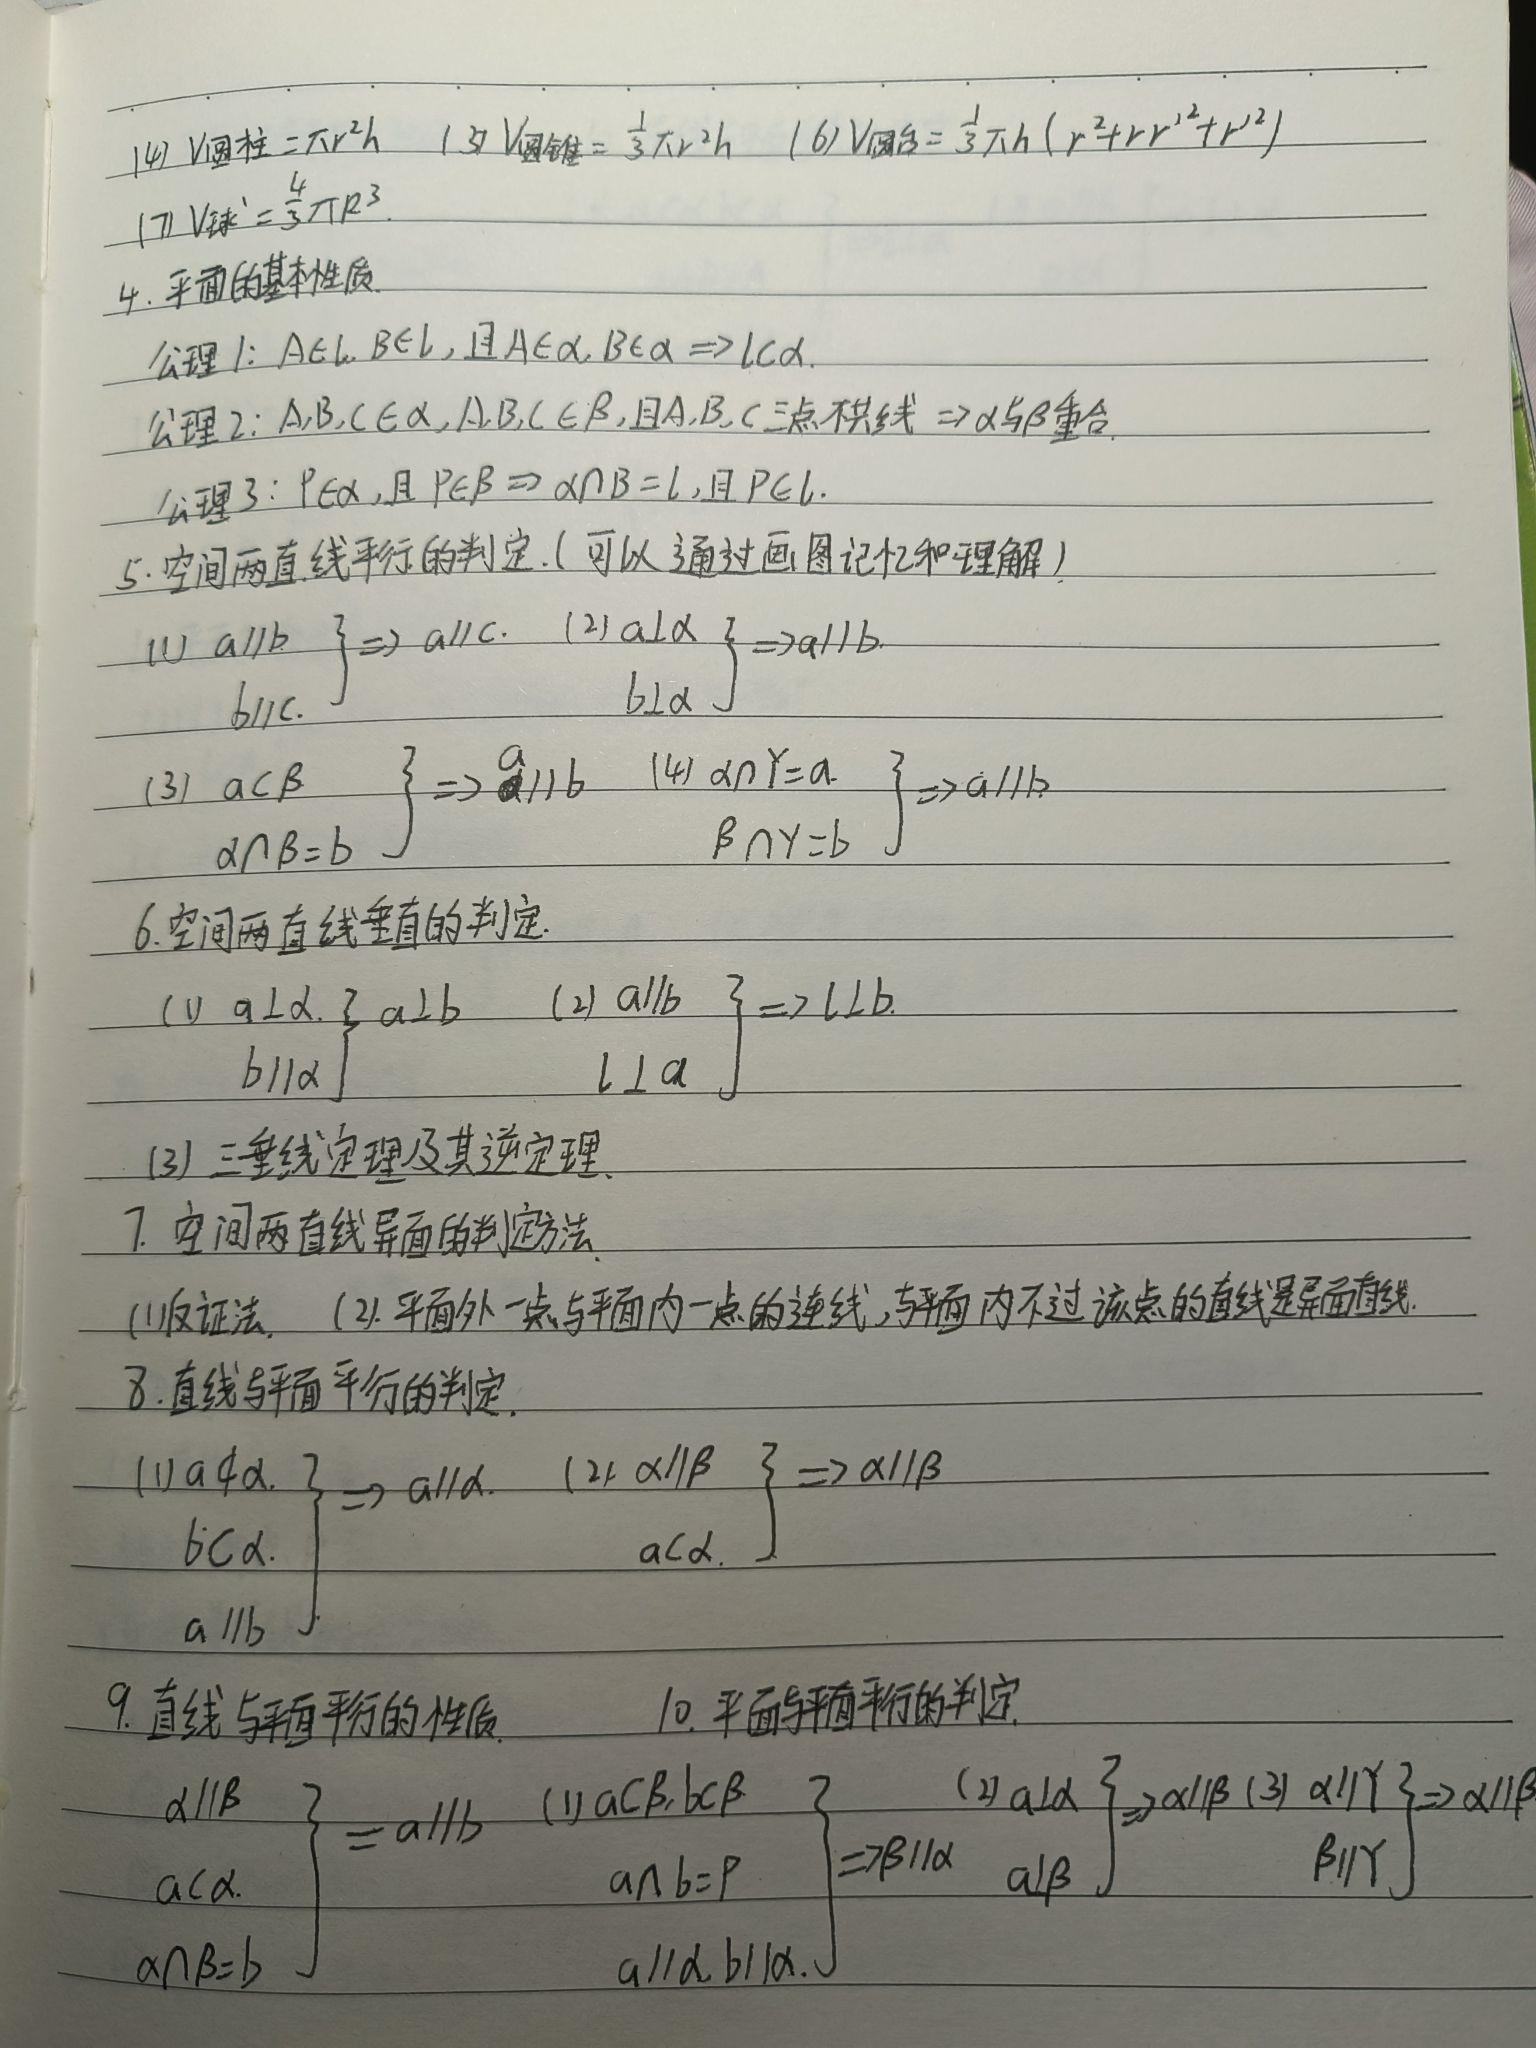 (4) V圆柱=πr²h (5) V圆锥=1/3πr²h (6) V圆台=1/3πh(r²+rr'²+r'²)
(7) V球=4/3πR³.
4. 平面的基本性质.
公理1: A∈l, B∈l, 且A∈α, B∈α ⇒ l⊂α.
公理2: A,B,C∈α, A,B,C∈β, 且A,B,C三点不共线 ⇒ α与β重合.
公理3: P∈α, 且P∈β ⇒ α∩B=l, 且P∈l.
5. 空间两直线平行的判定.(可以通过画图记忆和理解)
(1) a//b } ⇒ a//c. (2) a⊥α } ⇒ a//b.
b//c. b⊥α
(3) a⊂β } ⇒ a//b (4) α∩γ=a. } ⇒ a//b.
α∩β=b β∩γ=b
6. 空间两直线垂直的判定.
(1) a⊥α. } a⊥b (2) a//b } ⇒ l⊥b.
b//α l⊥a
(3) 三垂线定理及其逆定理.
7. 空间两直线异面的判定方法.
(1) 反证法. (2). 平面外一点与平面内一点的连线,与平面内不过该点的直线是异面直线.
8. 直线与平面平行的判定.
(1) a⊄α. } ⇒ a//α. (2). α//β } ⇒ α//β
b⊂α. a⊂α.
a//b
9. 直线与平面平行的性质. 10. 平面与平面平行的判定.
α//β } = a//b (1) a⊂β, b⊂β } ⇒ β//α (2) a⊥α } ⇒ α//β (3) α//γ } ⇒ α//β
a⊂α. a∩b=P a⊥β β//γ
α∩β=b a//α, b//α.